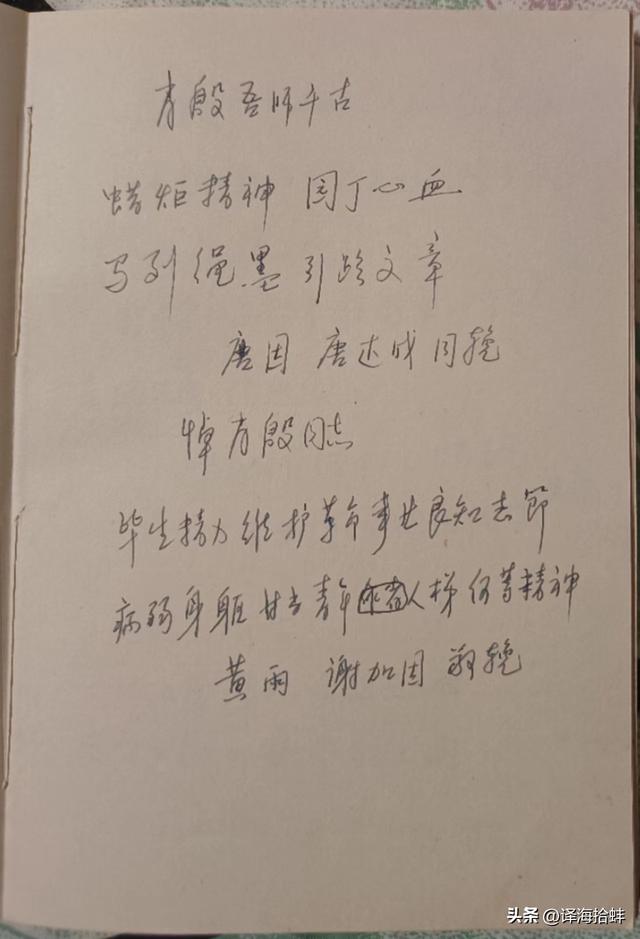 肖殷吾师千古
蜡炬精神 园丁心血
写到绳墨 引路文章
唐因 唐达成 同挽
悼肖殷同志
毕生精力维护革命事业良知志节
病弱身躯甘当青年人梯何等精神
黄雨 谢加因 敬挽
头条 @译海拾蚌